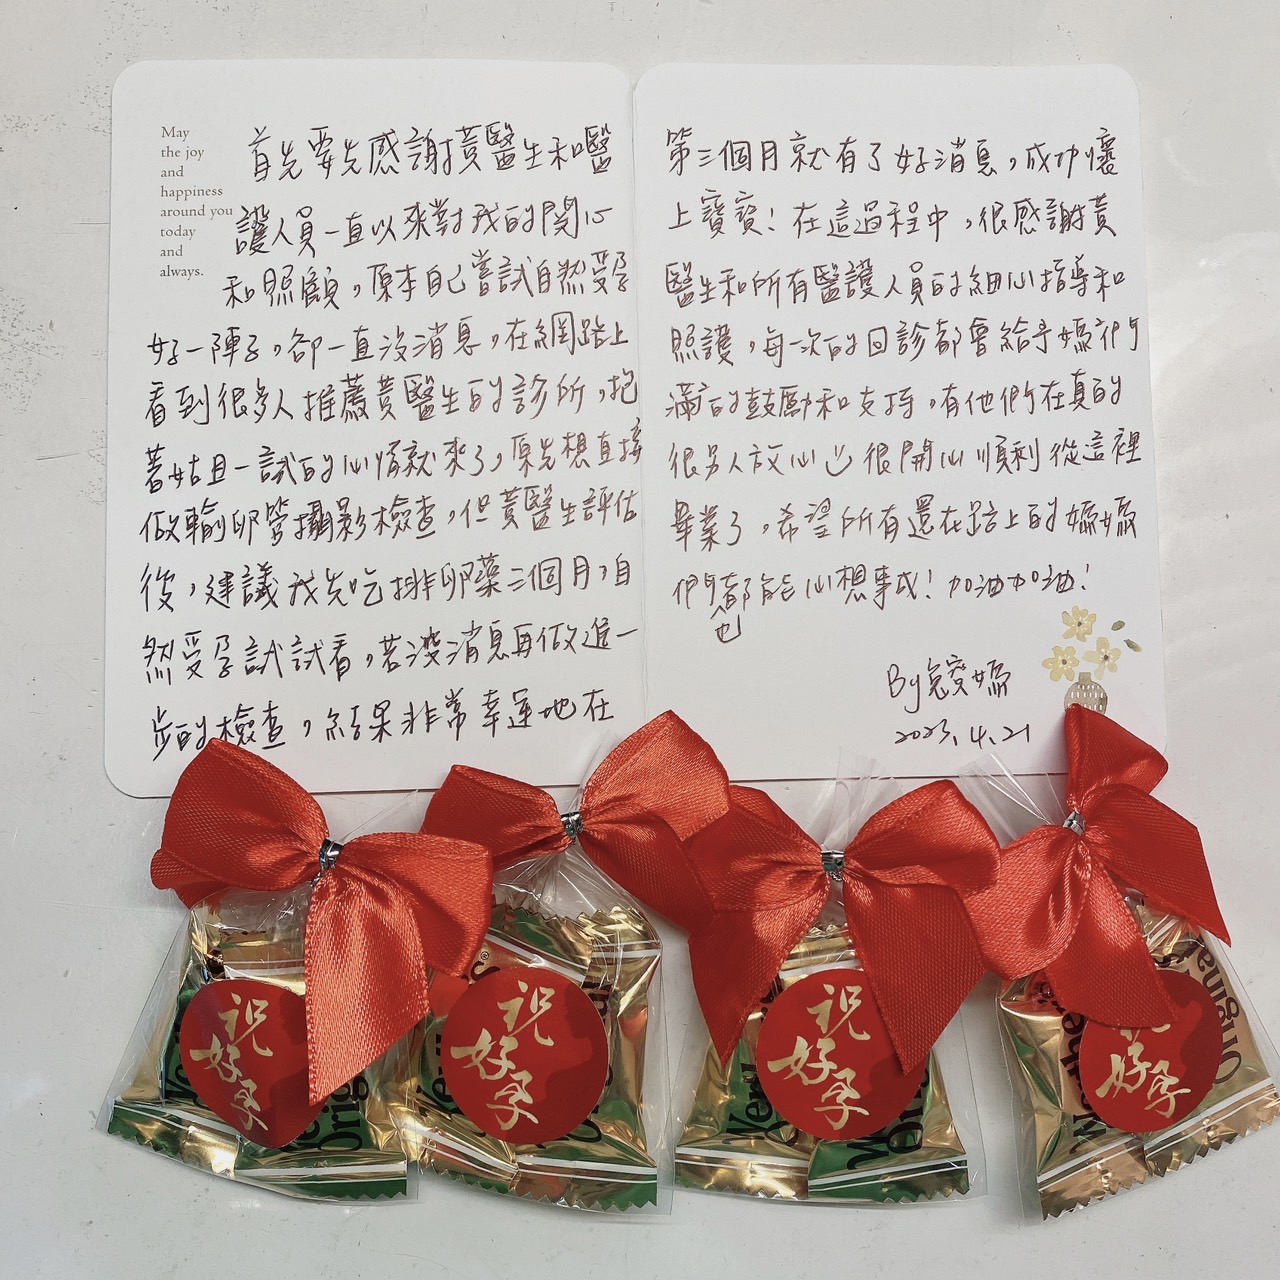 May
the joy
and
happiness
around you
today
and
always.
首先要先感謝黃醫生和醫
護人員一直以來對我的關心
和照顧，原本自己嘗試自然受孕
好一陣子，卻一直沒消息，在網路上
看到很多人推薦黃醫生的診所，抱
著姑且一試的心情就來了，原先想直接
做輸卵管攝影檢查，但黃醫生評估
後，建議我先吃排卵藥三個月，自
然受孕試試看，若沒消息再做進一
步的檢查，結果非常幸運地在
第三個月就有了好消息，成功懷
上寶寶！在這過程中，很感謝黃
醫生和所有醫護人員的細心指導和
照護，每一次的回診都會給予媽咪們
滿的鼓勵和支持，有他們在真的
很另人放心 很開心順利從這裡
畢業了，希望所有還在路上的媽媽
們都能心想事成！加油加油！
也
By 媽
2023.4.21
祝
好孕
祝
好孕
祝
好孕
好孕
Original